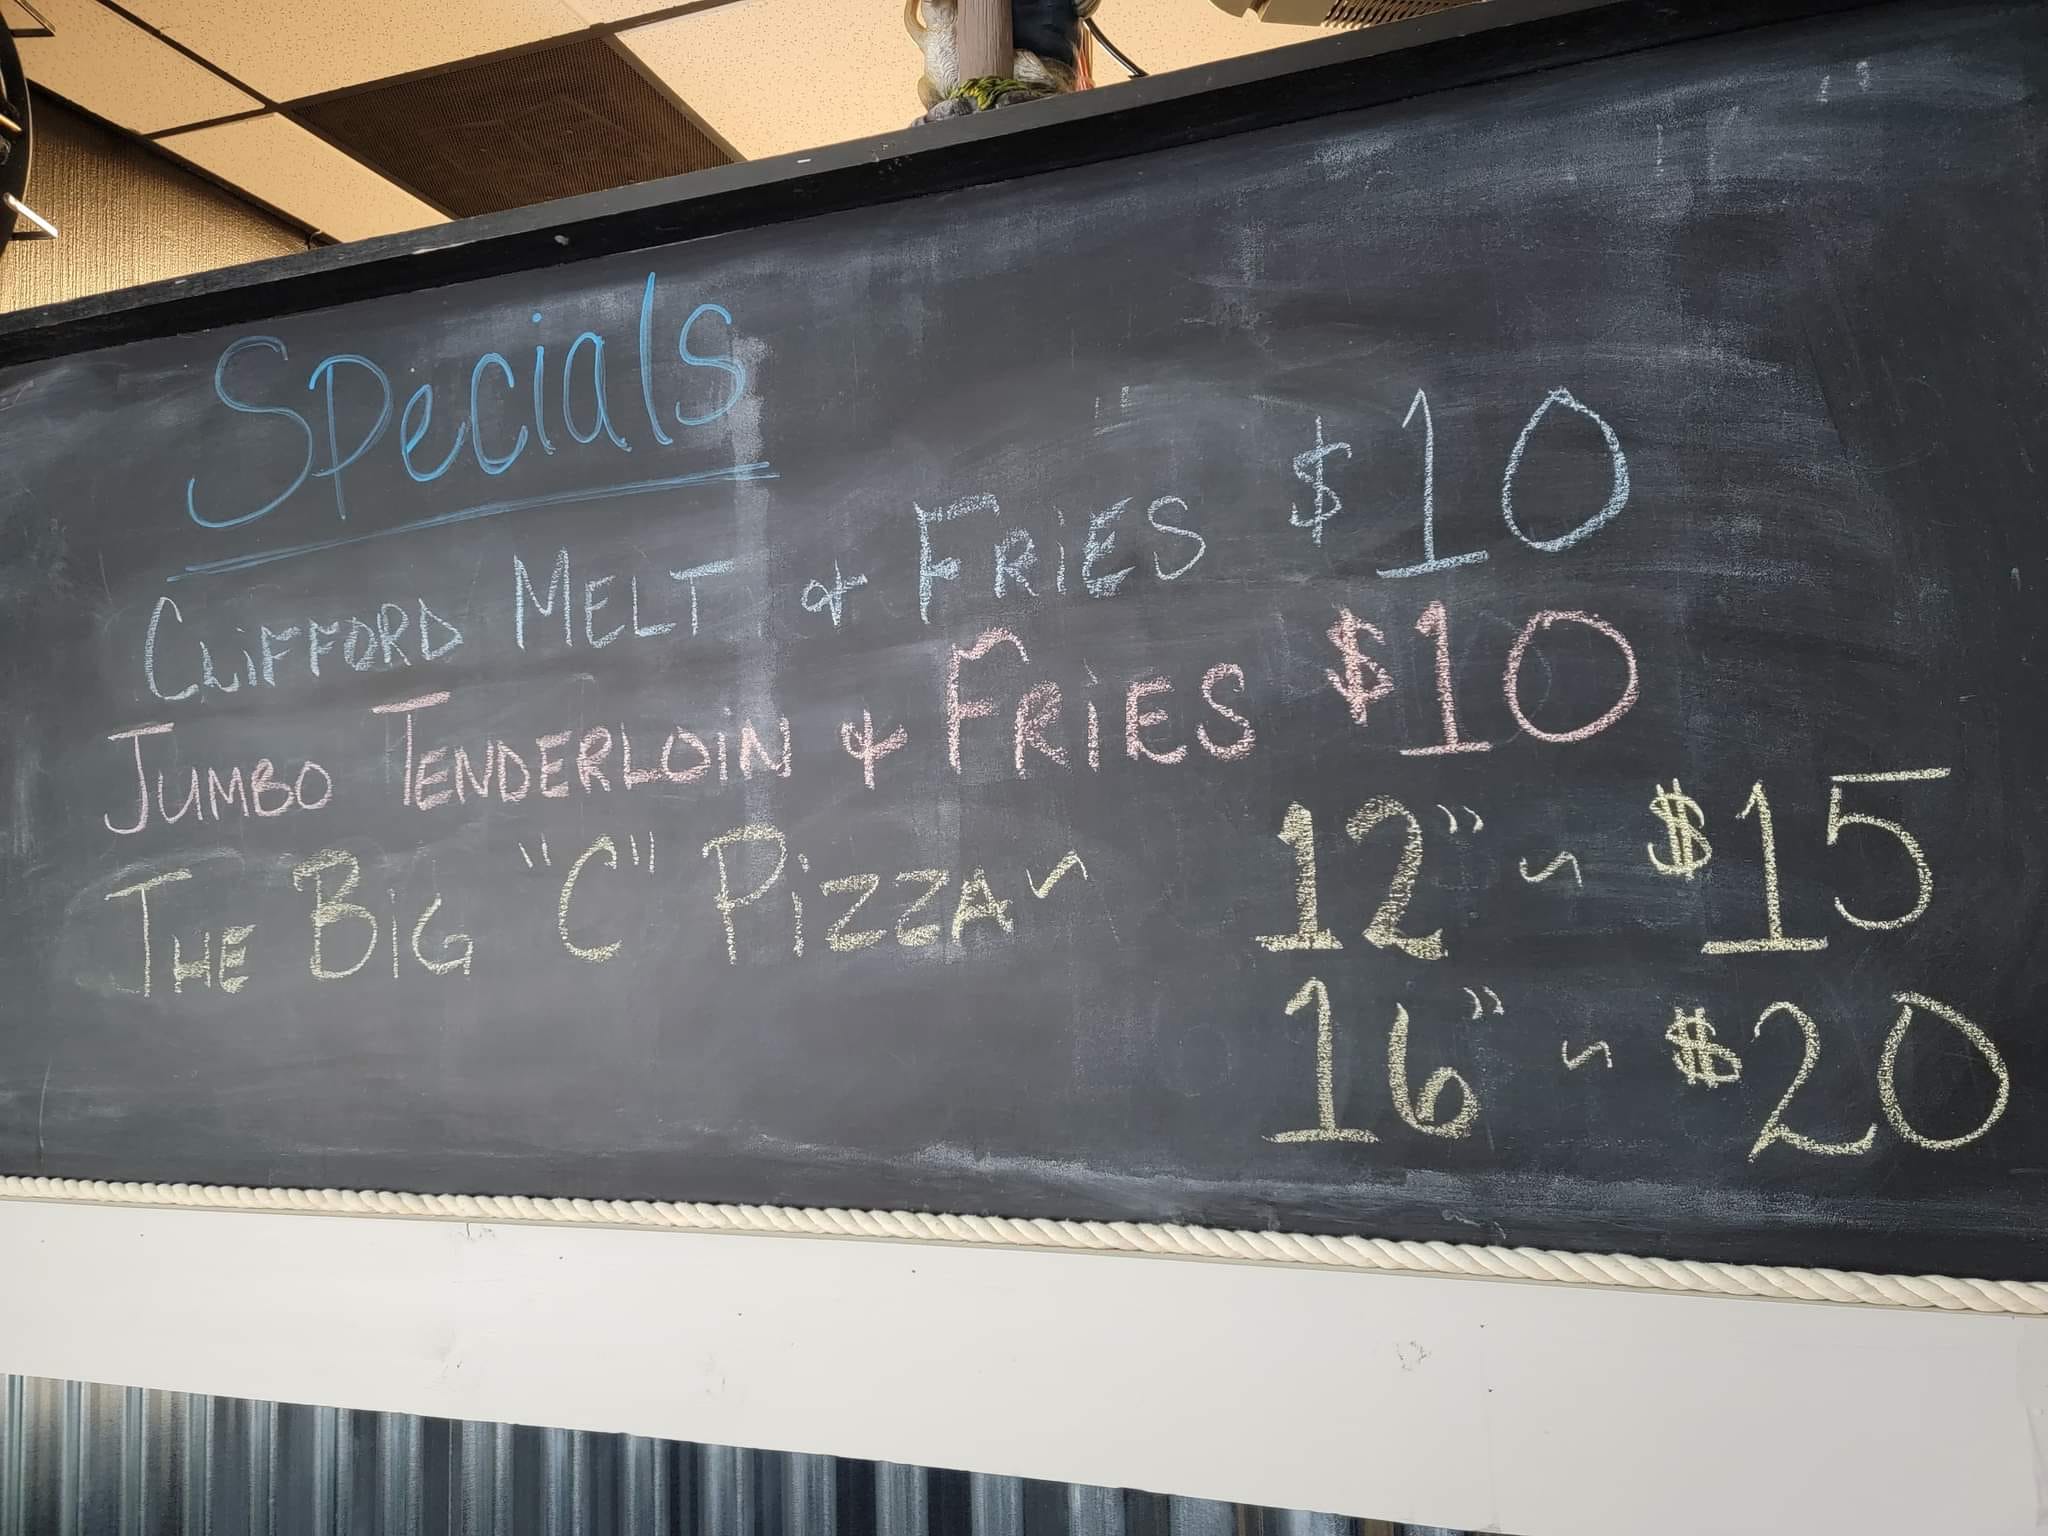 Specials
CLiFFORD MELT & FRiES $10
JUMBO TENDERLOiN & FRiES $10
THE BiG "C" PiZZA ~ 12" ~ $15
16" ~ $20